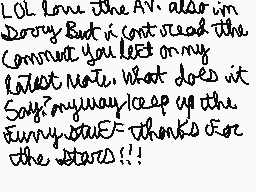 LOL Love the AV. also im
Sorry But i cant read the
Comment you left on my
Latest Note. What does it
Say? anyway Keep up the
Funny stuFF thanks For
the stars!!!